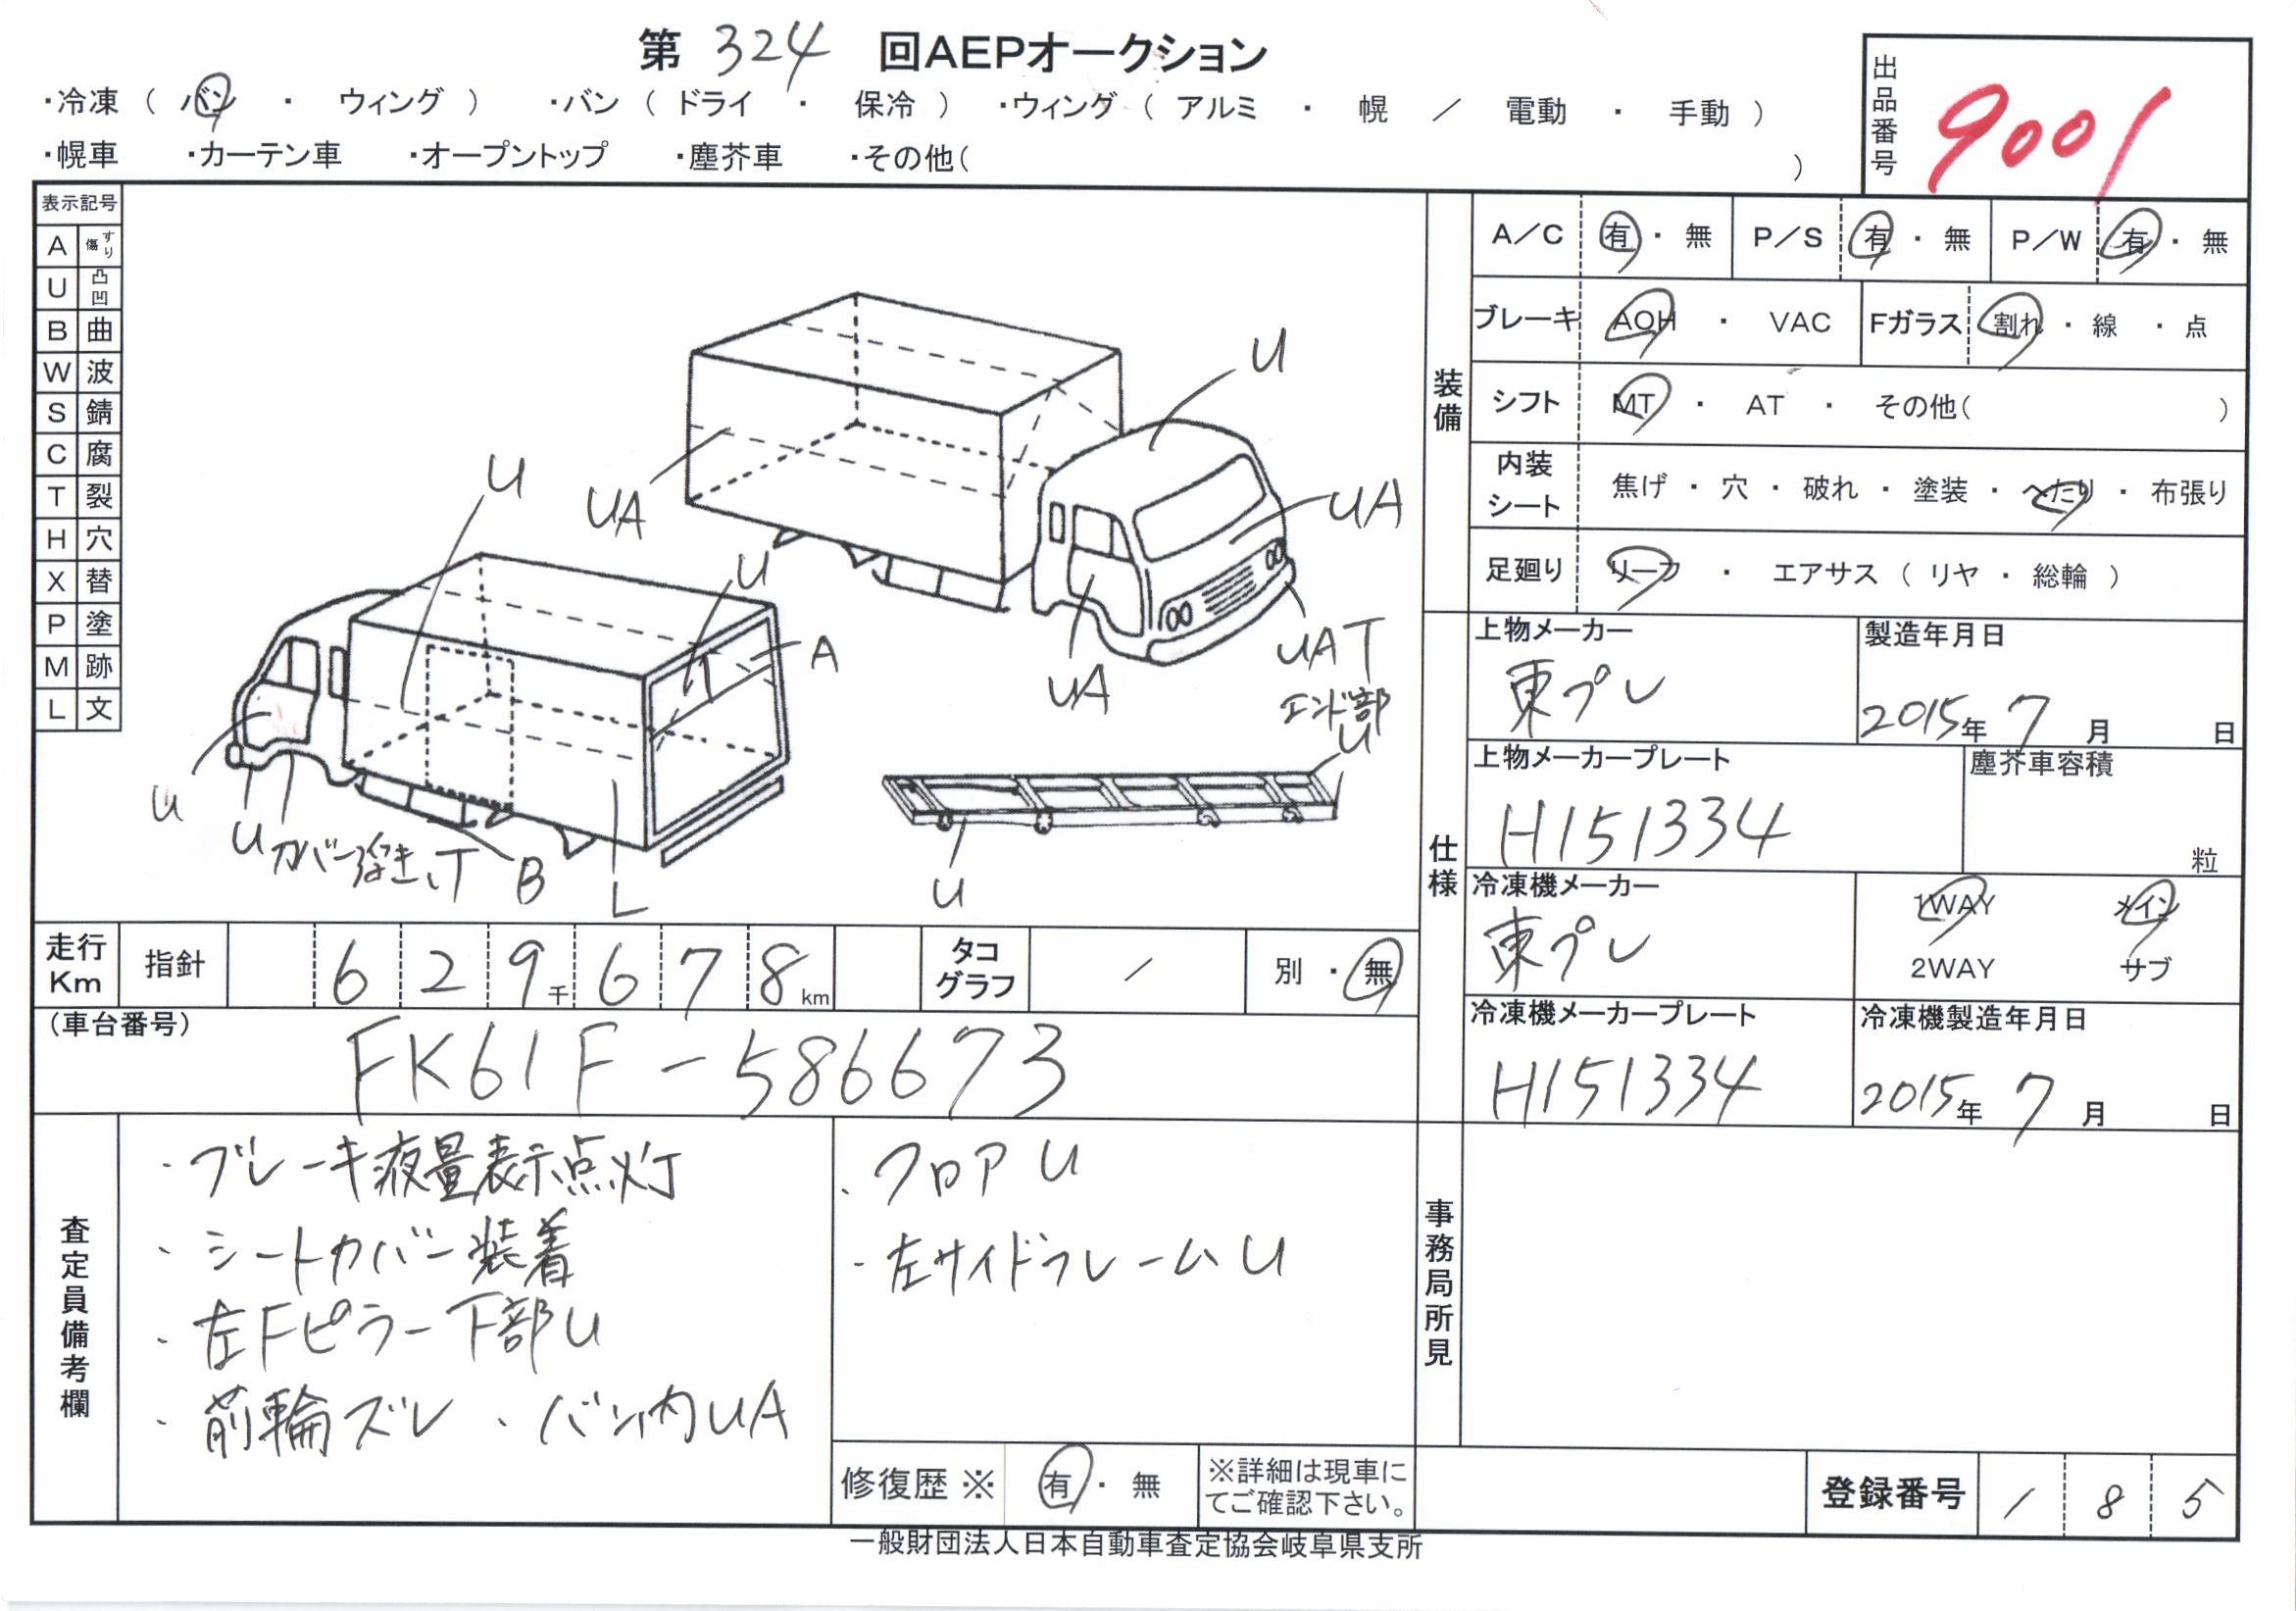 第 324 回AEPオークション
・冷凍（ バン ・ ウィング ） ・バン（ ドライ ・ 保冷 ） ・ウィング（ アルミ ・ 幌 ／ 電動 ・ 手動 ）
・幌車 ・カーテン車 ・オープントップ ・塵芥車 ・その他（ ）
出品番号 9001
表示記号
A すり傷
U 凸凹
B 曲
W 波
S 錆
C 腐
T 裂
H 穴
X 替
P 塗
M 跡
L 文
U
UA
UA
UA
UAT
エンド部
U
U
U
U
A
U
U
カバー浮き、T
B
L
U
装備
A／C 有 ・ 無 P／S 有 ・ 無 P／W 有 ・ 無
ブレーキ AOH ・ VAC Fガラス 割れ ・ 線 ・ 点
シフト MT ・ AT ・ その他（ ）
内装シート 焦げ ・ 穴 ・ 破れ ・ 塗装 ・ へたり ・ 布張り
足廻り リーフ ・ エアサス（ リヤ ・ 総輪 ）
仕様
上物メーカー 東プレ
製造年月日 2015年 7 月 日
上物メーカープレート H151334
塵芥車容積 粒
冷凍機メーカー 東プレ
1WAY メイン
2WAY サブ
冷凍機メーカープレート H151334
冷凍機製造年月日 2015年 7 月 日
走行Km 指針 6 2 9千 6 7 8km タコグラフ / 別 ・ 無
（車台番号）
FK61F-586673
査定員備考欄
・ブレーキ液量表示点灯
・シートカバー装着
・左Fピラー下部U
・前輪ズレ ・バン内UA
・フロアU
・左サイドフレームU
修復歴 ※ 有 ・ 無 ※詳細は現車にてご確認下さい。
事務局所見
登録番号 1 8 5
一般財団法人日本自動車査定協会岐阜県支所